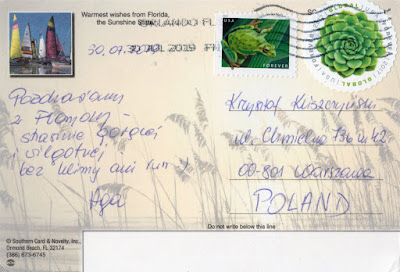 Warmest wishes from Florida,
the Sunshine State
ORLANDO FL
30.07.
30 JUL 2019 PM
USA
FOREVER
GLOBAL
USA
FOREVER
2017
Pozdrawiamy
z Florydy
strasznie gorącej
i wilgotnej
bez klimy ani rusz!
Aga
Krzysztof
ul. Chmielna 136 m 42
00-801 Warszawa
POLAND
Do not write below this line
© Southern Card & Novelty, Inc.
Ormond Beach, FL 32174
(386) 673-6745